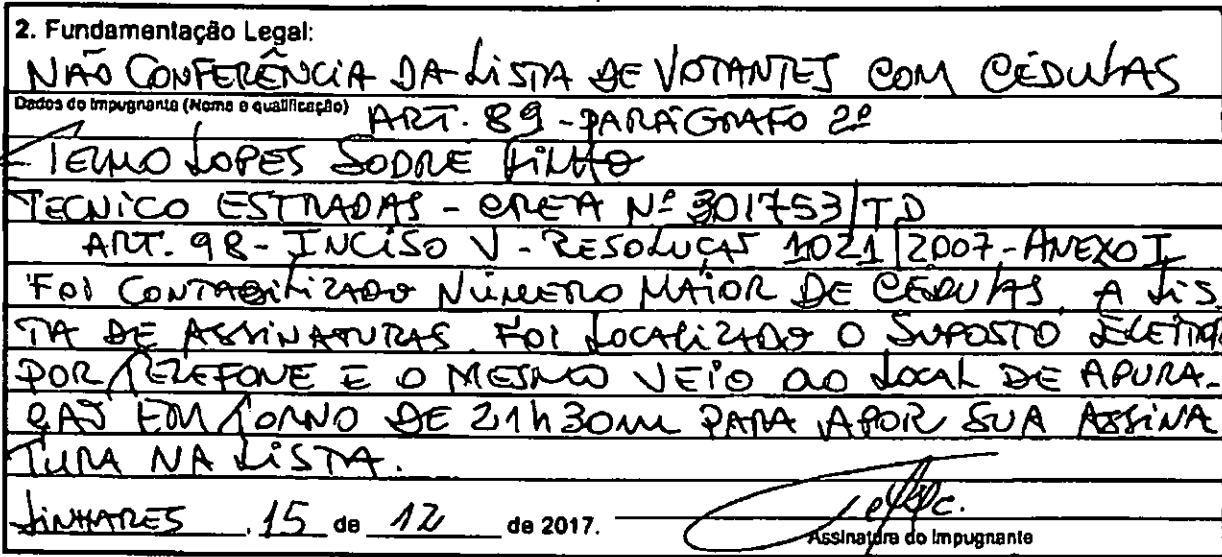 2. Fundamentação Legal:
NÃO CONFERÊNCIA DA LISTA DE VOTANTES COM CÉDULAS
Dados do Impugnante (Nome e qualificação)
ART. 89 - PARÁGRAFO 2º
TELMO LOPES SODRE FILHO
TECNICO ESTRADAS - CREA Nº 301753/TD
ART. 98 - INCISO V - RESOLUÇAO 1021/2007 - ANEXO I
FOI CONTABILIZADO NÚMERO MAIOR DE CÉDULAS A LIS
TA DE ASSINATURAS. FOI LOCALIZADO O SUPOSTO ELEITOR
POR TELEFONE E O MESMO VEIO AO LOCAL DE APURA-
ÇAO EM TORNO DE 21h30m PARA APOR SUA ASSINA
TURA NA LISTA.
LINHARES, 15 de 12 de 2017.
Assinatura do Impugnante